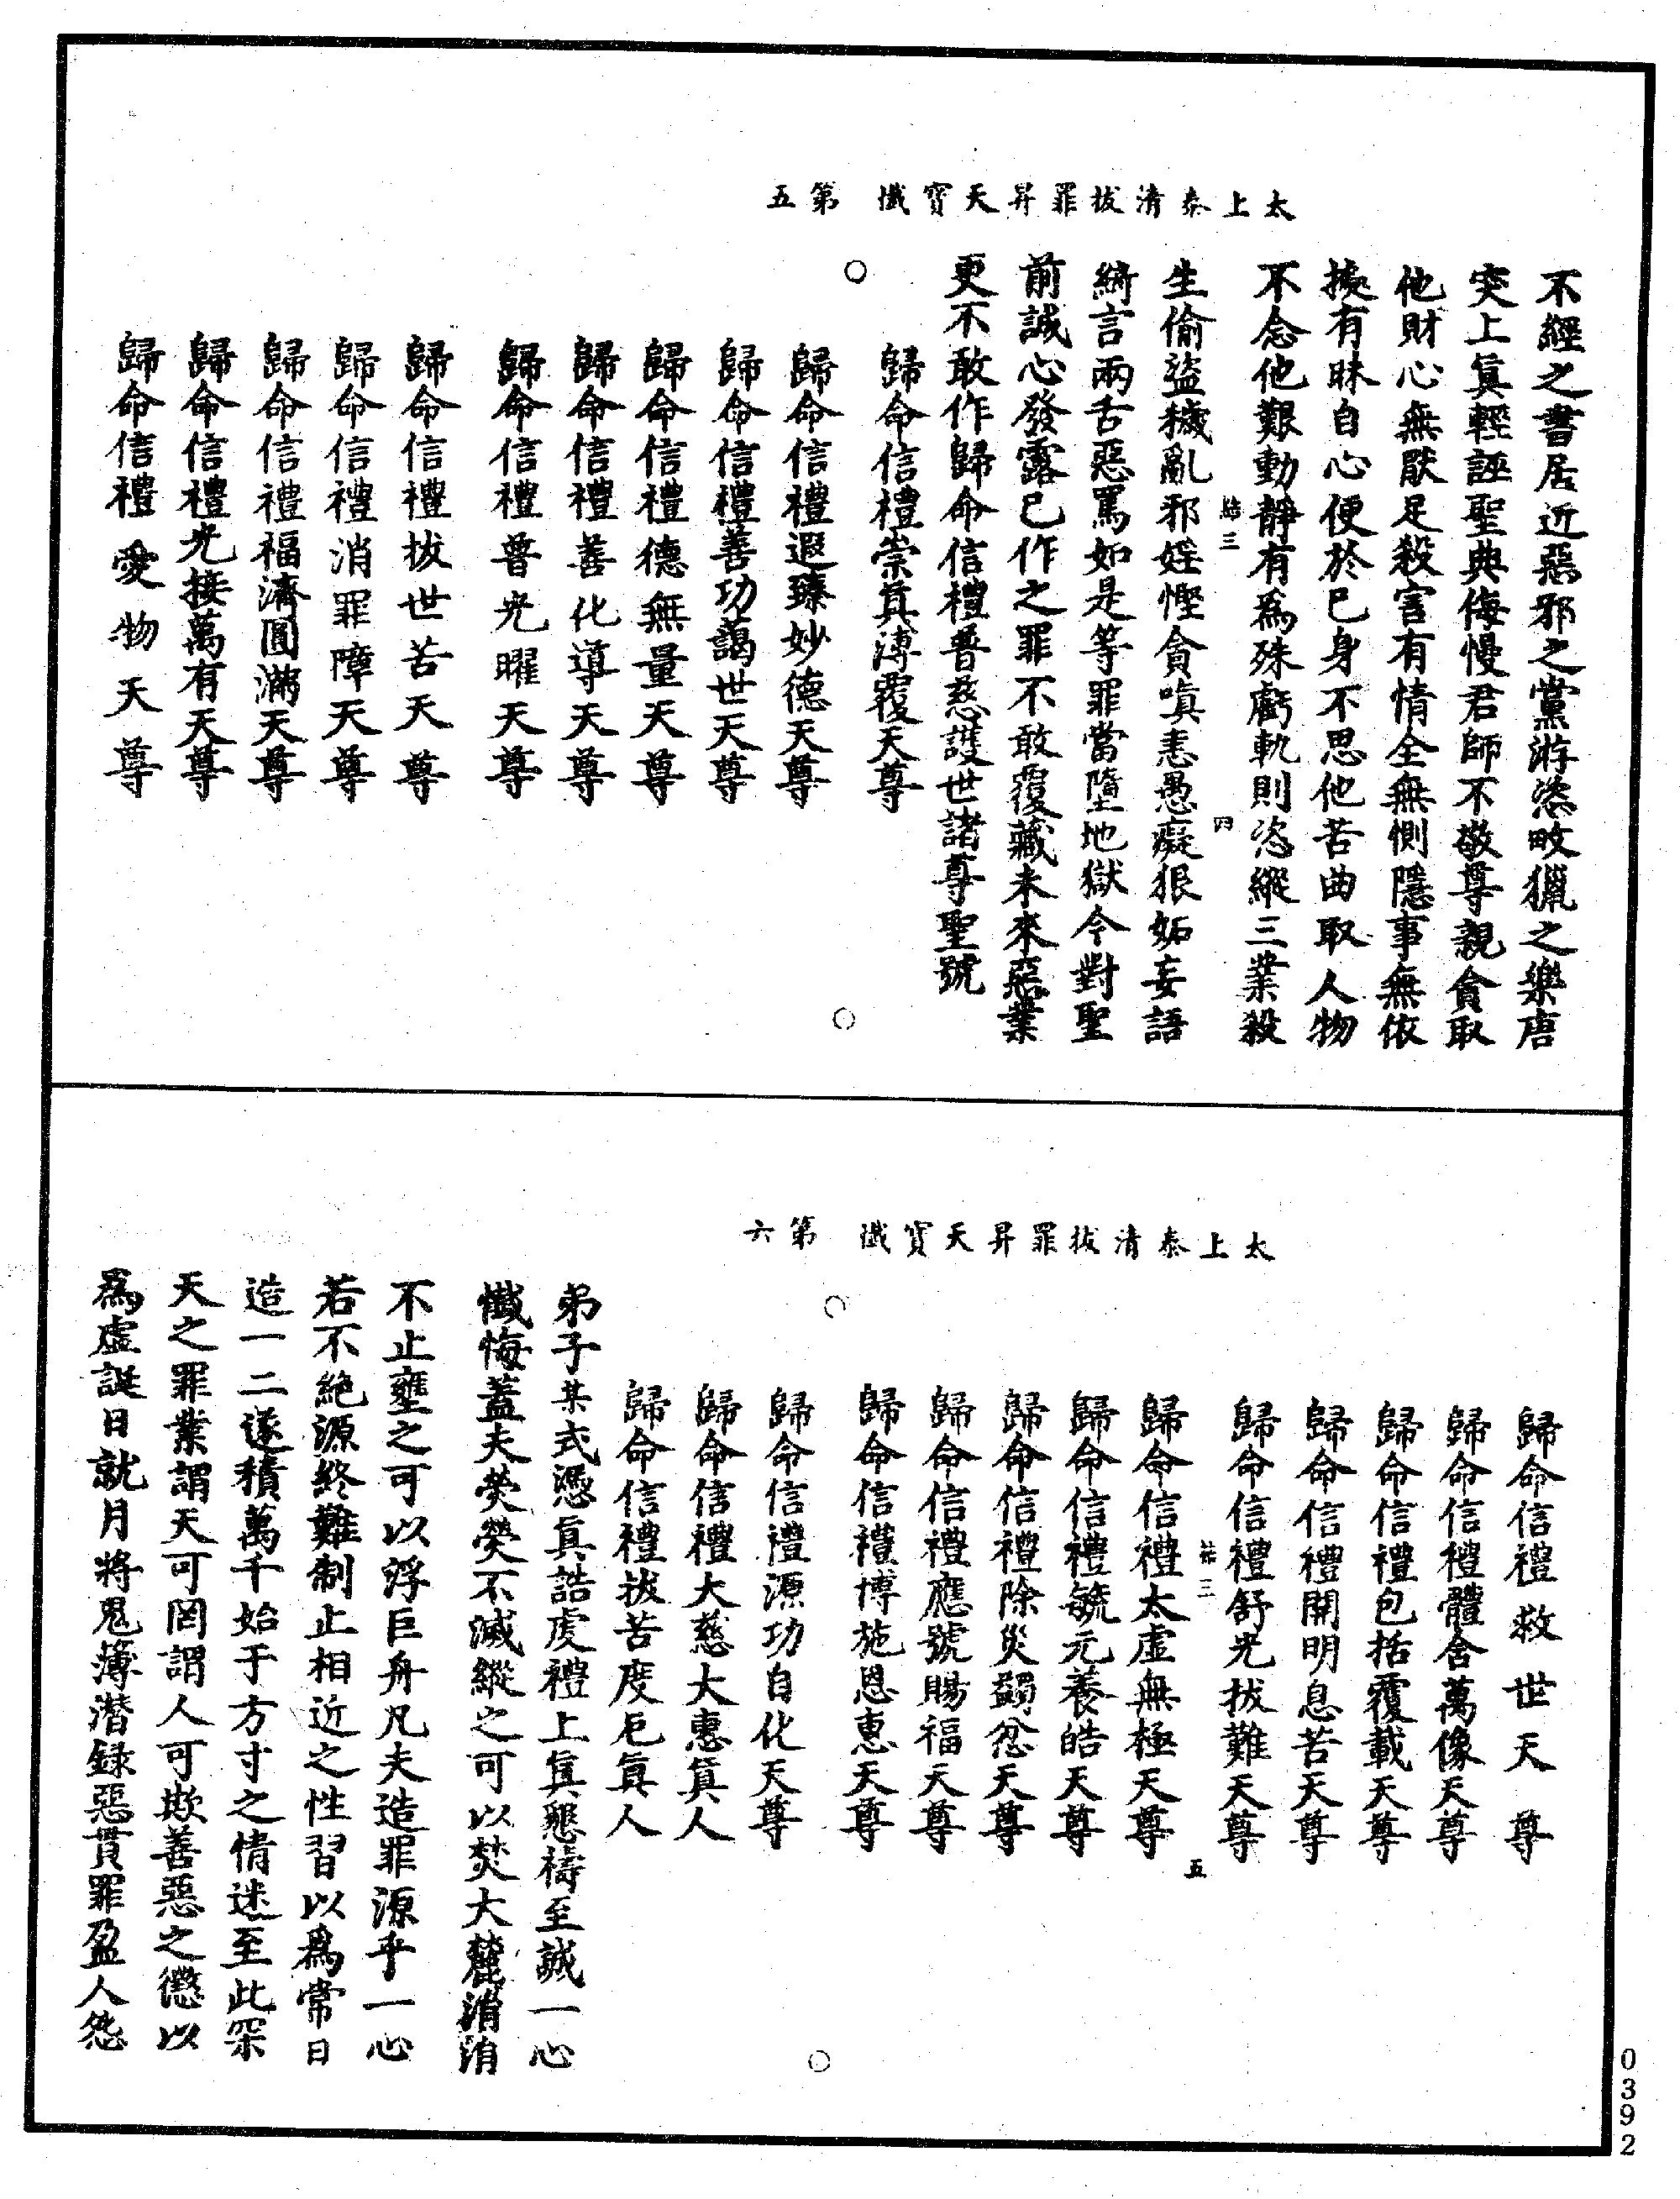 太上泰清拔罪昇天寶懺 第五
不經之書居近惡邪之黨游恣畋獵之樂唐
突上真輕誣聖典侮慢君師不敬尊親貪取
他財心無厭足殺害有情全無惻隱事無依
據有昧自心便於已身不思他苦曲取人物
不念他艱動靜有爲殊虧軌則恣縱三業殺
結三 四
生偷盜穢亂邪婬慳貪嗔恚愚癡狠妬妄語
綺言兩舌惡罵如是等罪當墮地獄今對聖
前誠心發露已作之罪不敢覆藏未來惡業
更不敢作歸命信禮普慈護世諸尊聖號
歸命信禮崇真溥覆天尊
歸命信禮遐臻妙德天尊
歸命信禮善功藹世天尊
歸命信禮德無量天尊
歸命信禮善化導天尊
歸命信禮普光曜天尊
歸命信禮拔世苦天尊
歸命信禮消罪障天尊
歸命信禮福濟圓滿天尊
歸命信禮光接萬有天尊
歸命信禮愛物天尊
太上泰清拔罪昇天寶懺 第六
歸命信禮救世天尊
歸命信禮體含萬像天尊
歸命信禮包括覆載天尊
歸命信禮開明息苦天尊
歸命信禮舒光拔難天尊
結三 五
歸命信禮太虛無極天尊
歸命信禮毓元養皓天尊
歸命信禮除災蠲忿天尊
歸命信禮應號賜福天尊
歸命信禮博施恩惠天尊
歸命信禮源功自化天尊
歸命信禮大慈大惠真人
歸命信禮拔苦度厄真人
弟子某式憑真誥虔禮上真懇禱至誠一心
懺悔蓋夫熒熒不滅縱之可以焚大麓涓涓
不止壅之可以浮巨舟凡夫造罪源乎一心
若不絕源終難制止相近之性習以爲常日
造一二遂積萬千始于方寸之情迷至此罙
天之罪業謂天可罔謂人可欺善惡之懲以
爲虛誕日就月將鬼簿潛録惡貫罪盈人怨
0392